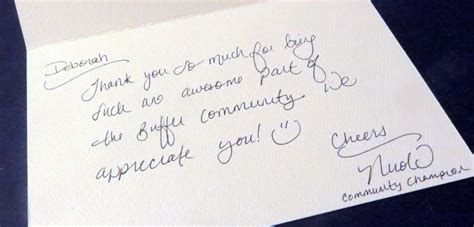 Deborah
Thank you so much for being
such an awesome part of
the Buffer community. We
appreciate you! :)
Cheers
Nicole
Community Champion